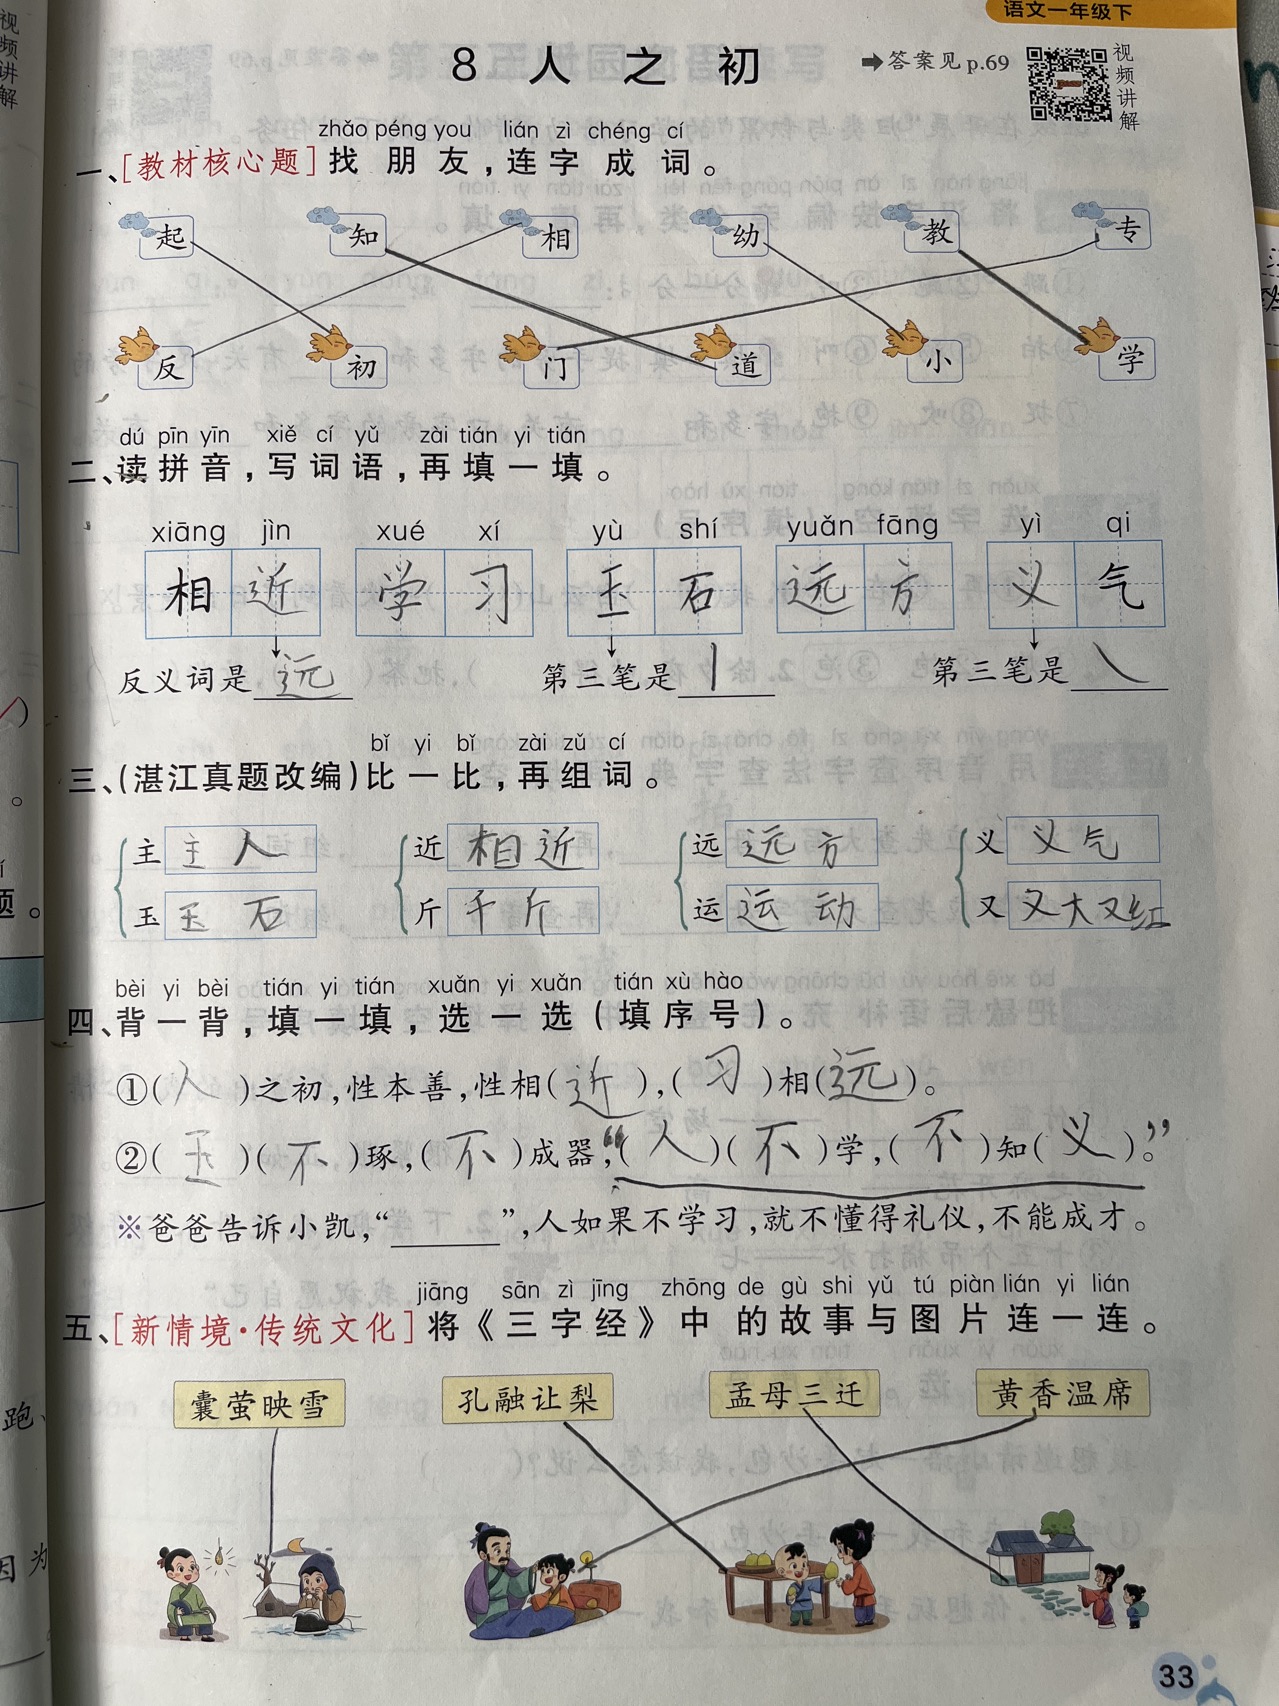 语文一年级下
8 人 之 初
➡答案见p.69
视频讲解
zhǎo péng you lián zì chéng cí
一、[教材核心题]找朋友,连字成词。
起 知 相 幼 教 专
反 初 门 道 小 学
dú pīn yīn xiě cí yǔ zài tián yi tián
二、读拼音,写词语,再填一填。
xiāng jìn xué xí yù shí yuǎn fāng yì qi
相近 学习 玉石 远方 义气
反义词是远 第三笔是丨 第三笔是㇏
bǐ yi bǐ zài zǔ cí
三、(湛江真题改编)比一比,再组词。
主 主人 近 相近 远 远方 义 义气
玉 玉石 斤 千斤 运 运动 又 又大又红
bèi yi bèi tián yi tián xuǎn yi xuǎn tián xù hào
四、背一背,填一填,选一选(填序号)。
①(人)之初,性本善,性相(近),(习)相(远)。
②(玉)(不)琢,(不)成器,“(人)(不)学,(不)知(义)。”
※爸爸告诉小凯,“______”,人如果不学习,就不懂得礼仪,不能成才。
jiāng sān zì jīng zhōng de gù shi yǔ tú piàn lián yi lián
五、[新情境·传统文化]将《三字经》中的故事与图片连一连。
囊萤映雪 孔融让梨 孟母三迁 黄香温席
33
视频讲解
题。
跑、
因为